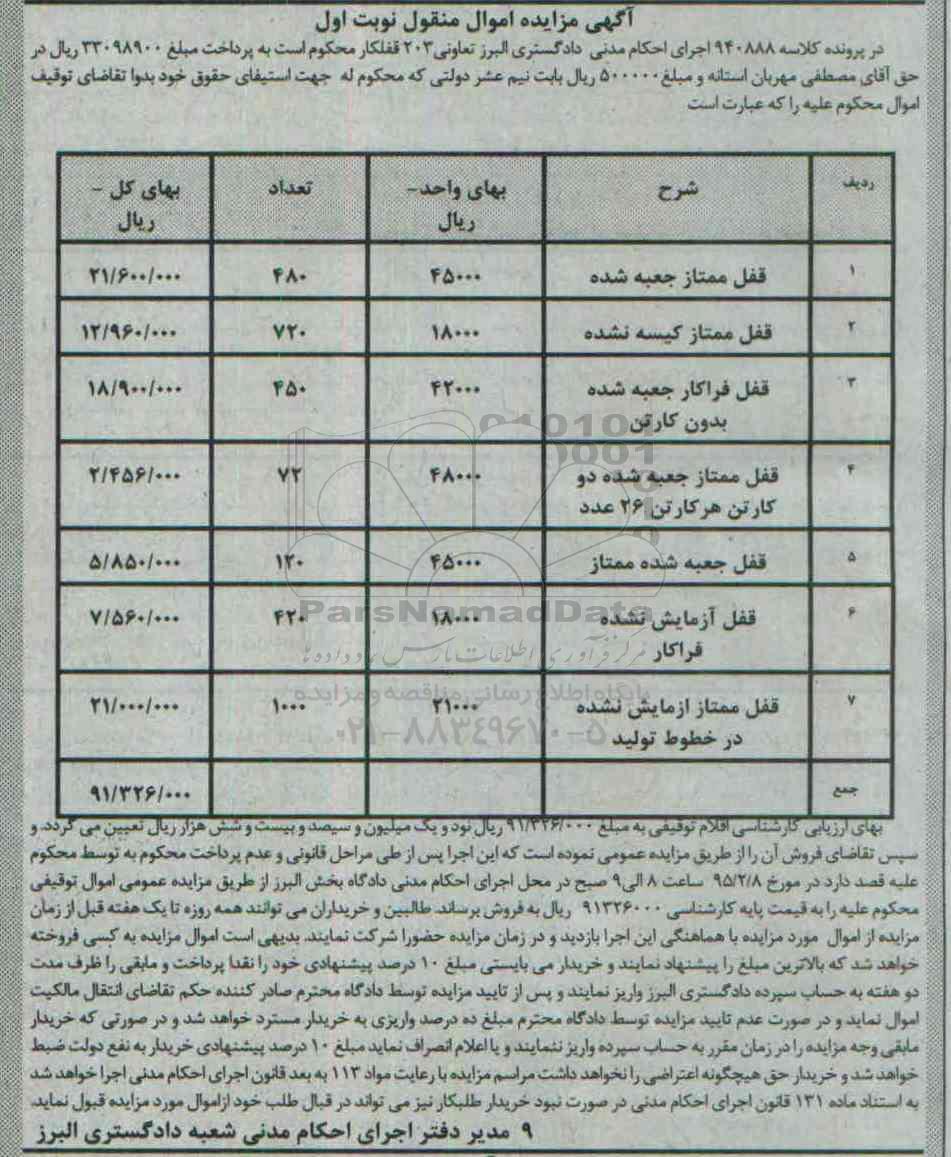 آگهی مزایده اموال منقول نوبت اول
در پرونده کلاسه ۹۴۰۸۸۸ اجرای احکام مدنی دادگستری البرز تعاونی۲۰۳ قفلکار محکوم است به پرداخت مبلغ ۳۳۰۹۸۹۰۰ ریال در
حق آقای مصطفی مهربان استانه و مبلغ۵۰۰۰۰۰ ریال بابت نیم عشر دولتی که محکوم له جهت استیفای حقوق خود بدوا تقاضای توقیف
اموال محکوم علیه را که عبارت است
ردیف شرح بهای واحد– ریال تعداد بهای کل – ریال
۱ قفل ممتاز جعبه شده ۴۵۰۰۰ ۴۸۰ ۲۱/۶۰۰/۰۰۰
۲ قفل ممتاز کیسه نشده ۱۸۰۰۰ ۷۲۰ ۱۲/۹۶۰/۰۰۰
۳ قفل فراکار جعبه شده ۴۲۰۰۰ ۴۵۰ ۱۸/۹۰۰/۰۰۰
بدون کارتن
۴ قفل ممتاز جعبه شده دو ۴۸۰۰۰ ۷۲ ۲/۴۵۶/۰۰۰
کارتن هرکارتن ۲۶ عدد
۵ قفل جعبه شده ممتاز ۴۵۰۰۰ ۱۲۰ ۵/۸۵۰/۰۰۰
۶ قفل آزمایش نشده ۱۸۰۰۰ ۴۲۰ ۷/۵۶۰/۰۰۰
فراکار
۷ قفل ممتاز ازمایش نشده ۲۱۰۰۰ ۱۰۰۰ ۲۱/۰۰۰/۰۰۰
در خطوط تولید
جمع ۹۱/۳۲۶/۰۰۰
بهای ارزیابی کارشناسی اقلام توقیفی به مبلغ ۹۱/۳۲۶/۰۰۰ ریال نود و یک میلیون و سیصد و بیست و شش هزار ریال تعیین می گردد. و
سپس تقاضای فروش آن را از طریق مزایده عمومی نموده است که این اجرا پس از طی مراحل قانونی و عدم پرداخت محکوم به توسط محکوم
علیه قصد دارد در مورخ ۹۵/۲/۸ ساعت ۸ الی۹ صبح در محل اجرای احکام مدنی دادگاه بخش البرز از طریق مزایده عمومی اموال توقیفی
محکوم علیه را به قیمت پایه کارشناسی ۹۱۳۲۶۰۰۰ ریال به فروش برساند. طالبین و خریداران می توانند همه روزه تا یک هفته قبل از زمان
مزایده از اموال مورد مزایده با هماهنگی این اجرا بازدید و در زمان مزایده حضورا شرکت نمایند. بدیهی است اموال مزایده به کسی فروخته
خواهد شد که بالاترین مبلغ را پیشنهاد نمایند و خریدار می بایستی مبلغ ۱۰ درصد پیشنهادی خود را نقدا پرداخت و مابقی را ظرف مدت
دو هفته به حساب سپرده دادگستری البرز واریز نمایند و پس از تایید مزایده توسط دادگاه محترم صادر کننده حکم تقاضای انتقال مالکیت
اموال نماید و در صورت عدم تایید مزایده توسط دادگاه محترم مبلغ ده درصد واریزی به خریدار مسترد خواهد شد و در صورتی که خریدار
مابقی وجه مزایده را در زمان مقرر به حساب سپرده واریز ننمایند و یا اعلام انصراف نماید مبلغ ۱۰ درصد پیشنهادی خریدار به نفع دولت ضبط
خواهد شد و خریدار حق هیچگونه اعتراضی را نخواهد داشت مراسم مزایده با رعایت مواد ۱۱۳ به بعد قانون اجرای احکام مدنی اجرا خواهد شد
به استناد ماده ۱۳۱ قانون اجرای احکام مدنی در صورت نبود خریدار طلبکار نیز می تواند در قبال طلب خود ازاموال مورد مزایده قبول نماید.
۹ مدیر دفتر اجرای احکام مدنی شعبه دادگستری البرز
ParsNamadData
مرکز فرآوری اطلاعات پارس نماد داده ها
پایگاه اطلاع رسانی مناقصه و مزایده
۰۲۱-۸۸۳۴۹۶۷۰-۵